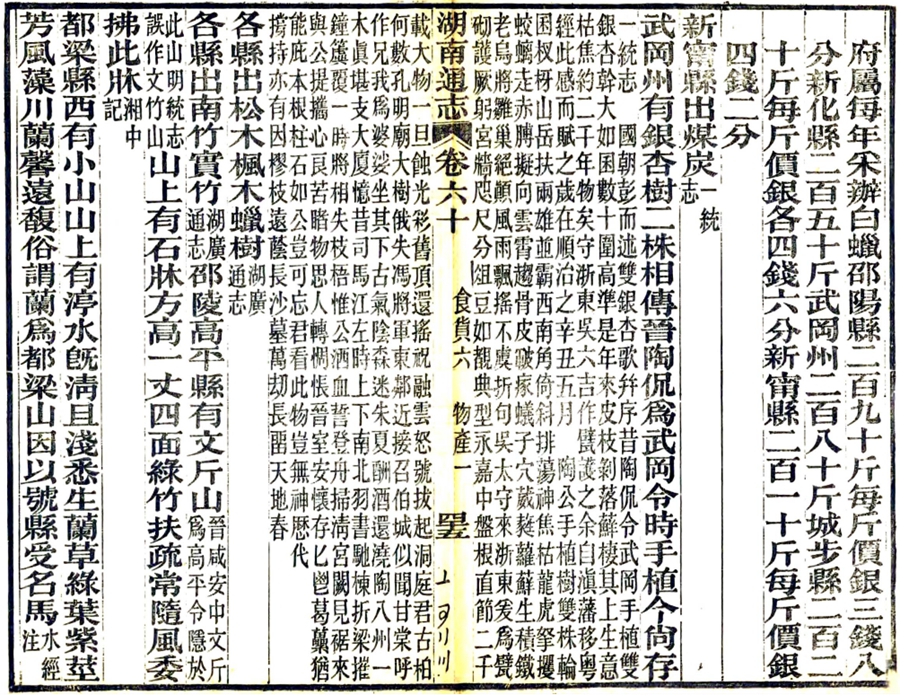 府屬每年采辦白蠟邵陽縣二百九十斤每斤價銀三錢八
分新化縣二百五十斤武岡州二百八十斤城步縣二百二
十斤每斤價銀各四錢六分新甯縣二百一十斤每斤價銀
四錢二分
新甯縣出煤炭一統志
武岡州有銀杏樹二株相傳晉陶侃爲武岡令時手植今尚存
一統志 國朝彭而述雙銀杏歌幷序昔陶侃令武岡手植雙
銀杏幹大如囷數十圍高準是年來皮枝剝落蘚棲其上生意
枯焦約二千年物矣守浙東吳六吉作甓護之余自滇藩移粵
經此感而賦之歲在順治之辛丑五月 陶公手植樹雙株輪
囷杈枒山岳扶兩雄並霸西南角倚斜排蕩神焦枯龍虎拏攫
蛟螭走赤髀擬向雲霄趨骨皮皴瘃蟻子穴葳蕤蘿蘚生積鐵
老烏將雛巢絕顛風雨飄搖不虞折句吳太守來浙東爰爲甓
砌護厥躬宮牆咫尺分俎豆如覩典型永嘉中盤根直節二千
湖南通志 卷六十 食貨六 物產一
載大物一旦蝕光彩舊頂還搖祝融雲怒號拔起洞庭君古柏
何數孔明廟大樹俄失馮將軍東鄰近接召伯城似聞甘棠呼
作兄我爲婆娑坐其下古氣陰森迷朱夏酬酒還澆陶八州一
木眞堪支大廈憶昔司馬江左時上下南北羽書馳棟折梁摧
鐘簴覆一時將相失枝梧惟公洒血誓登舟掃淸宮闕見裾來
與公提攜心良苦睹物思人轉惆悵晉室安懷存匕鬯葛藟猶
能庇本根柱石如公豈可忘君看此物豈無神歷代
撐持亦有因樛枝遠蔭長沙墓萬劫長畱天地春
各縣出松木楓木蠟樹湖廣通志
各縣出南竹實竹湖廣通志邵陵高平縣有文斤山晉咸安中文斤爲高平令隱於
此山明統志誤作文竹山山上有石牀方高一丈四面綠竹扶疏常隨風委
拂此牀湘中記
都梁縣西有小山山上有渟水旣淸且淺悉生蘭草綠葉紫莖
芳風藻川蘭馨遠馥俗謂蘭爲都梁山因以號縣受名焉水經注